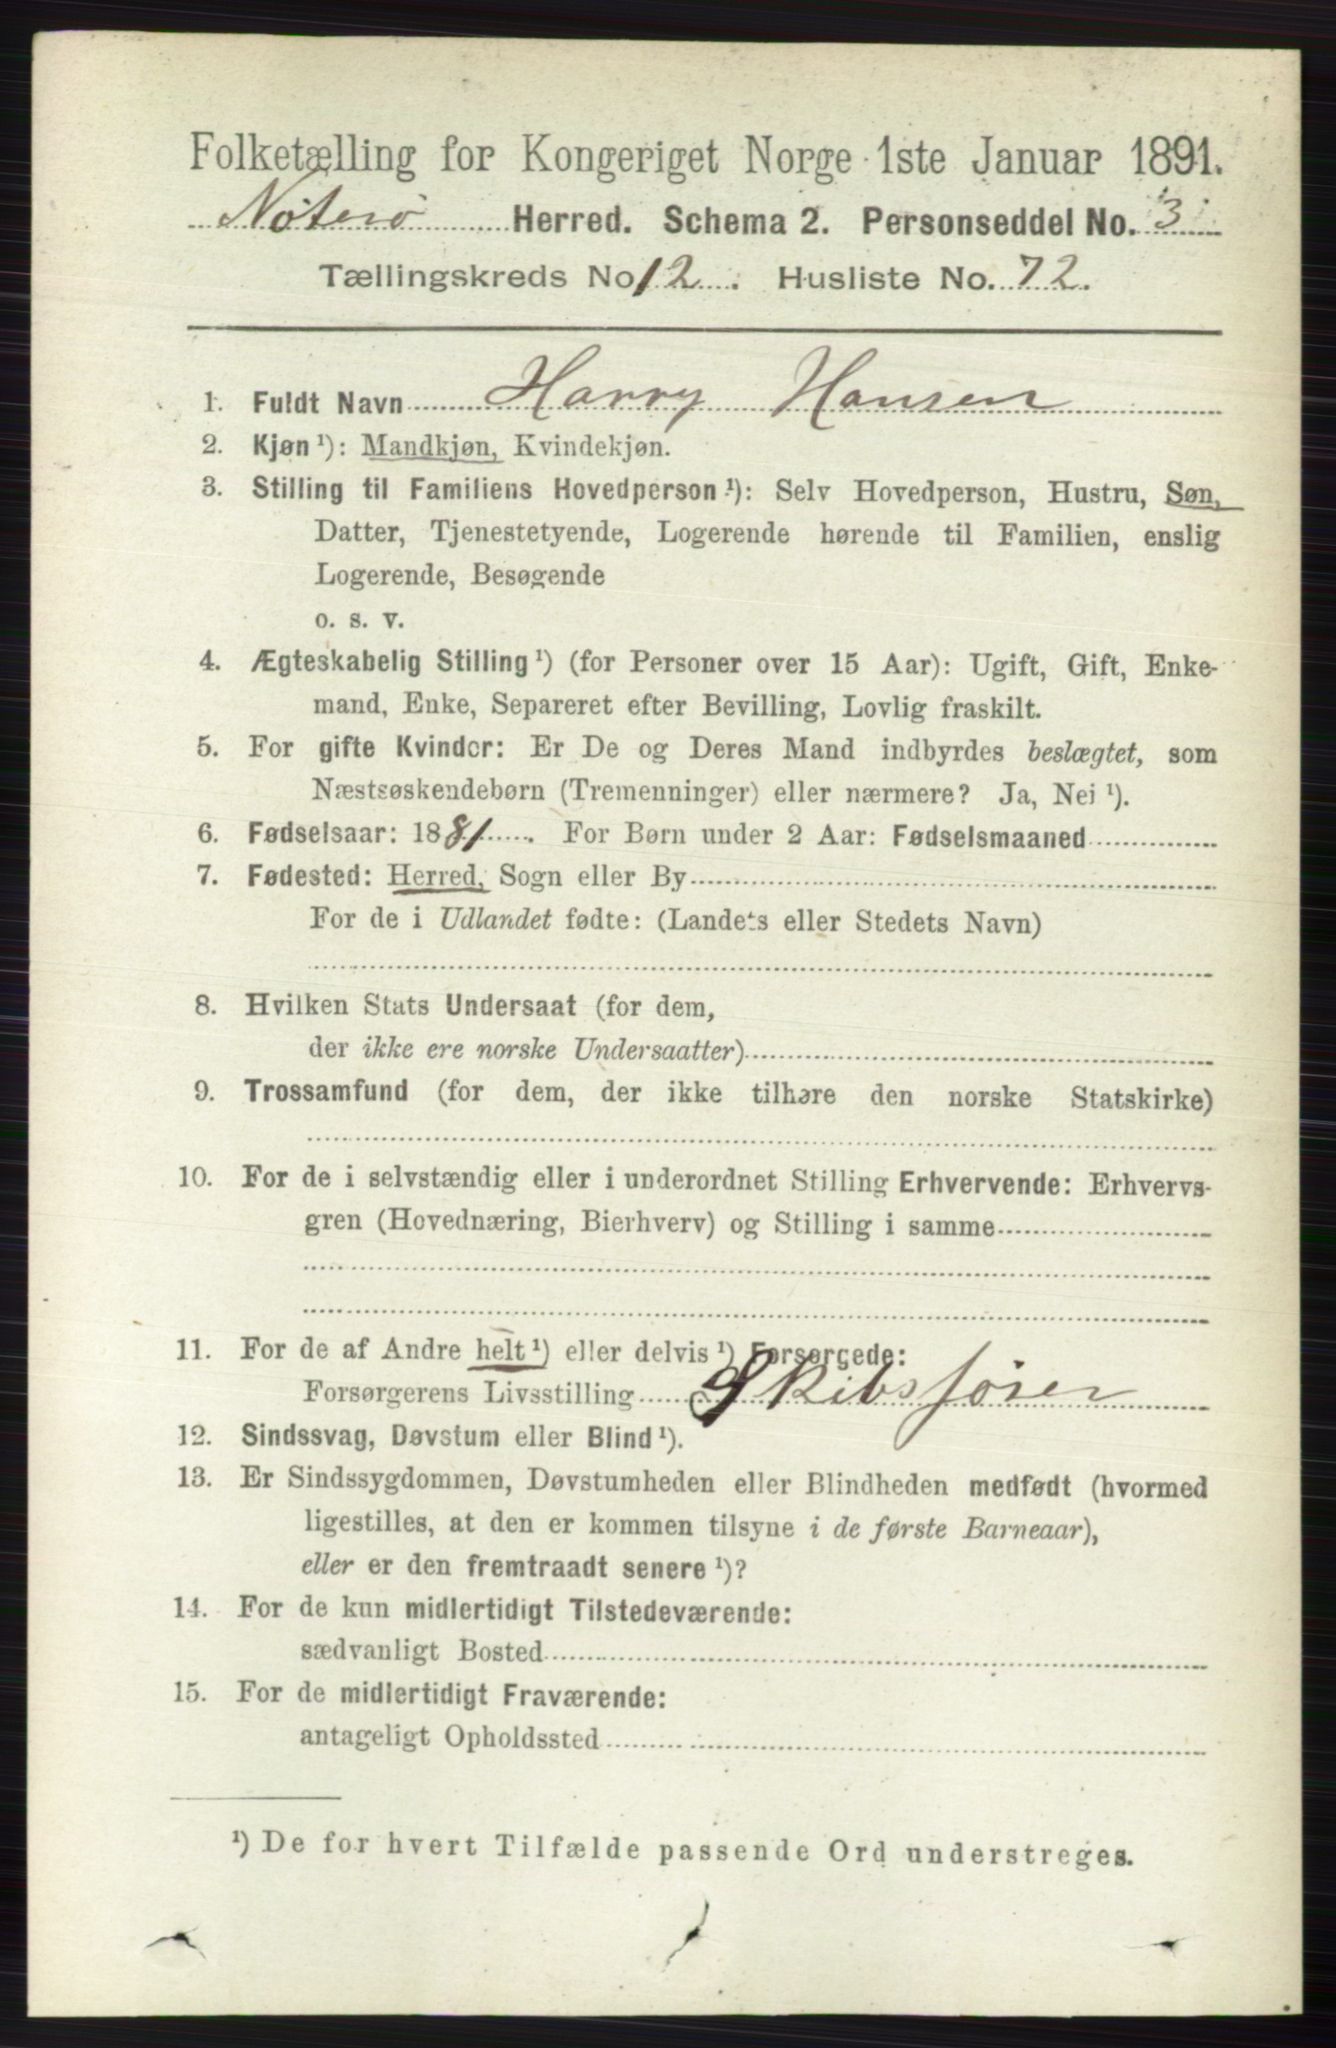 Folketælling for Kongeriget Norge 1ste Januar 1891.
Nøterø Herred. Schema 2. Personseddel No. 3
Tællingskreds No 12. Husliste No. 72.
1. Fuldt Navn Harry Hansen
2. Kjøn ¹): Mandkjøn, Kvindekjøn.
3. Stilling til Familiens Hovedperson ¹): Selv Hovedperson, Hustru, Søn,
Datter, Tjenestetyende, Logerende hørende til Familien, enslig
Logerende, Besøgende
o. s. v.
4. Ægteskabelig Stilling ¹) (for Personer over 15 Aar): Ugift, Gift, Enke-
mand, Enke, Separeret efter Bevilling, Lovlig fraskilt.
5. For gifte Kvinder: Er De og Deres Mand indbyrdes beslægtet, som
Næstsøskendebørn (Tremenninger) eller nærmere? Ja, Nei ¹).
6. Fødselsaar: 1881. For Børn under 2 Aar: Fødselsmaaned
7. Fødested: Herred, Sogn eller By
For de i Udlandet fødte: (Landets eller Stedets Navn)
8. Hvilken Stats Undersaat (for dem,
der ikke ere norske Undersaatter)
9. Trossamfund (for dem, der ikke tilhøre den norske Statskirke)
10. For de i selvstændig eller i underordnet Stilling Erhvervende: Erhvervs-
gren (Hovednæring, Bierhverv) og Stilling i samme
11. For de af Andre helt ¹) eller delvis ¹) Forsørgede:
Forsørgerens Livsstilling Skibsfører
12. Sindssvag, Døvstum eller Blind ¹).
13. Er Sindssygdommen, Døvstumheden eller Blindheden medfødt (hvormed
ligestilles, at den er kommen tilsyne i de første Barneaar),
eller er den fremtraadt senere ¹)?
14. For de kun midlertidigt Tilstedeværende:
sædvanligt Bosted
15. For de midlertidigt Fraværende:
antageligt Opholdssted
¹) De for hvert Tilfælde passende Ord understreges.